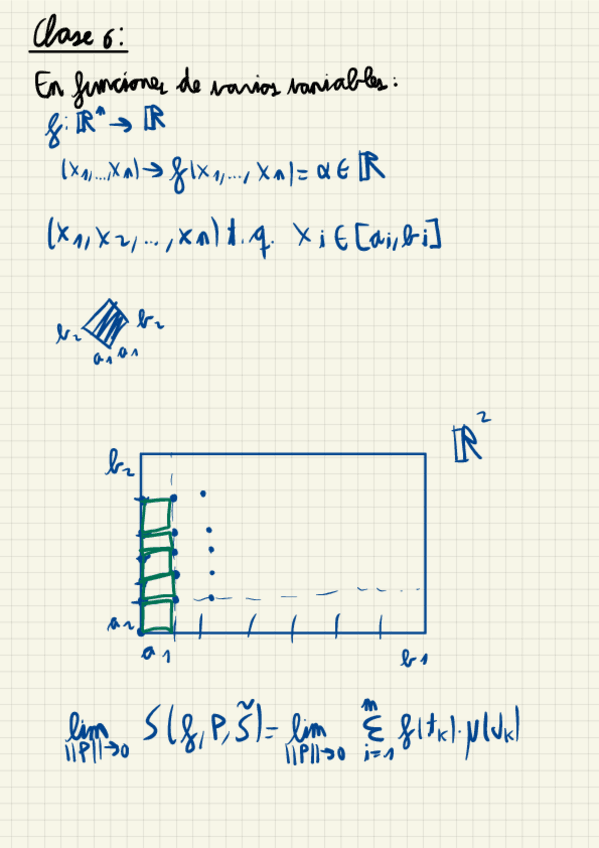 Clase 6:
En funciones de varios variables:
f: ℝⁿ → ℝ
(x₁,...,xₙ) → f(x₁,..., xₙ) = α ∈ ℝ
(x₁, x₂, ..., xₙ) t.q. xᵢ ∈ [aᵢ, bᵢ]
b₂ b₂
a₁ a₁
ℝ²
b₂
a₂
a₁ b₁
lim S(f, P, S̃) = lim Σ f(tₖ)·μ(Jₖ)
||P||→0 ||P||→0 i=1 m